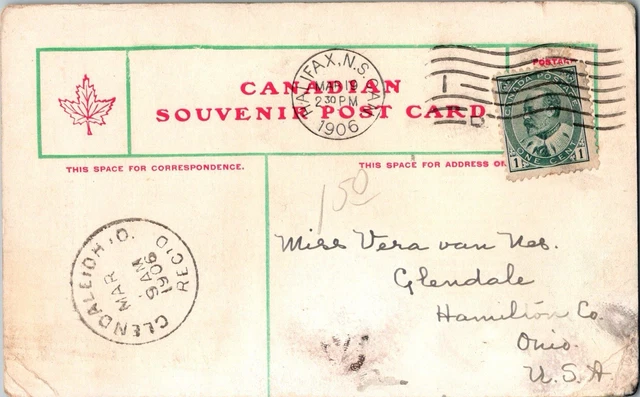 HALIFAX, N.S. CAN.
MAR 19
2 30 PM
1906
CANADIAN
SOUVENIR POST CARD
POSTAG
CANADA POSTAG
1 ONE CENT 1
THIS SPACE FOR CORRESPONDENCE.
THIS SPACE FOR ADDRESS ON
150
GLENDALE, O.
MAR
9 AM
1906
REC'D
Miss Vera van Nes.
Glendale
Hamilton Co.
Ohio.
U.S.A